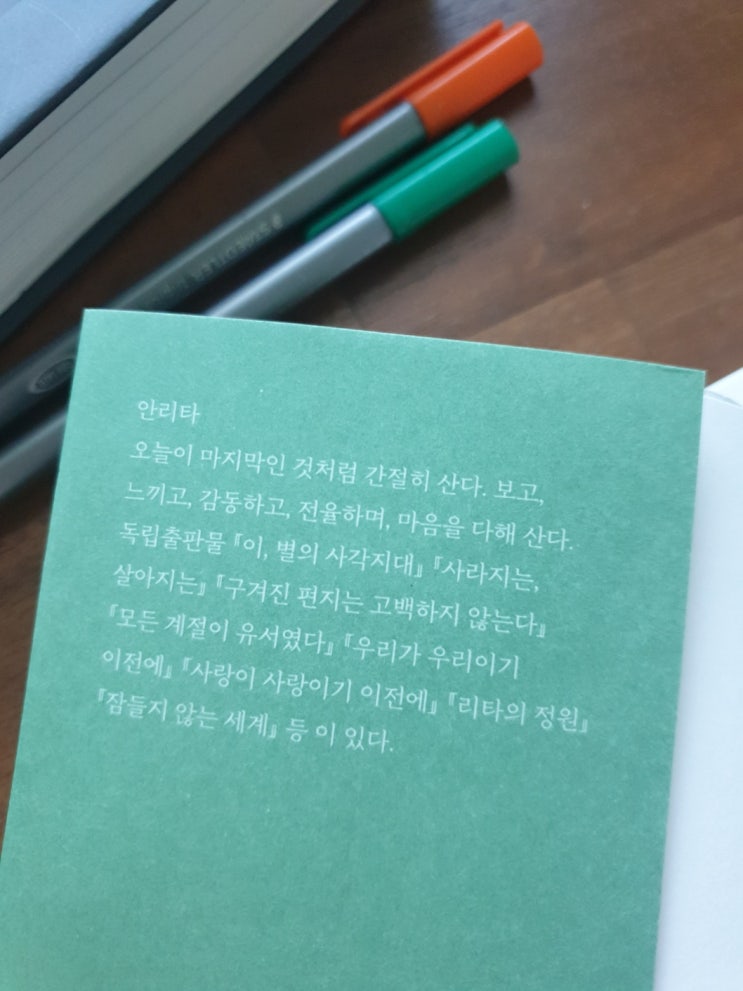 STAEDTLER
안리타
오늘이 마지막인 것처럼 간절히 산다. 보고,
느끼고, 감동하고, 전율하며, 마음을 다해 산다.
독립출판물 『이, 별의 사각지대』 『사라지는,
살아지는』 『구겨진 편지는 고백하지 않는다』
『모든 계절이 유서였다』 『우리가 우리이기
이전에』 『사랑이 사랑이기 이전에』 『리타의 정원』
『잠들지 않는 세계』 등 이 있다.